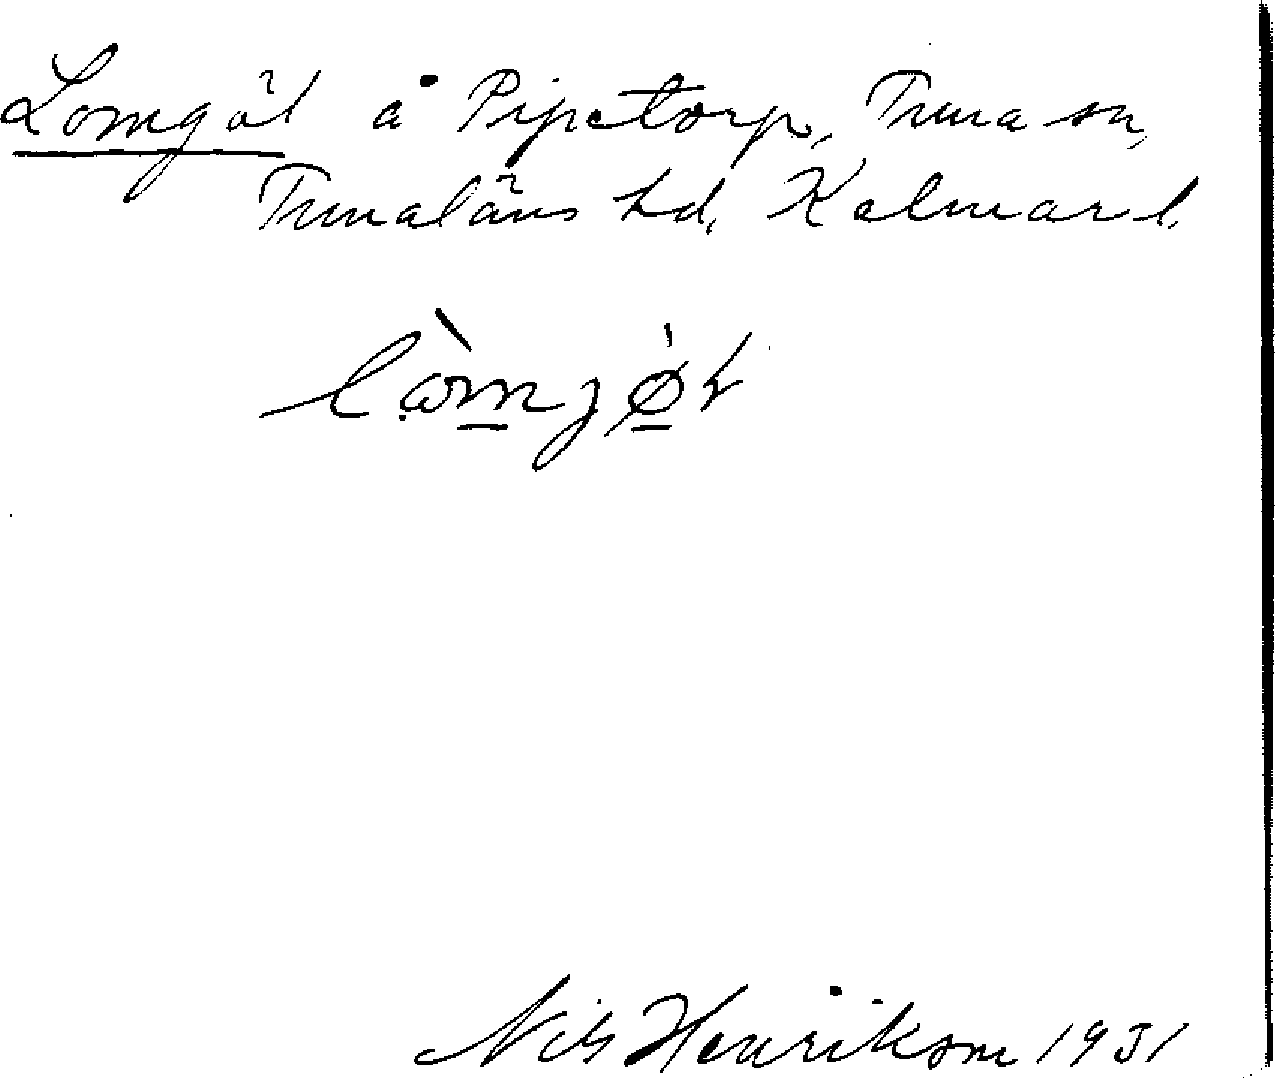 Lomgöl å Pipetorp, Tuna sn,
Tunaläns hd, Kalmar l.
lo̠mjø̠l
Nils Henrikson 1931